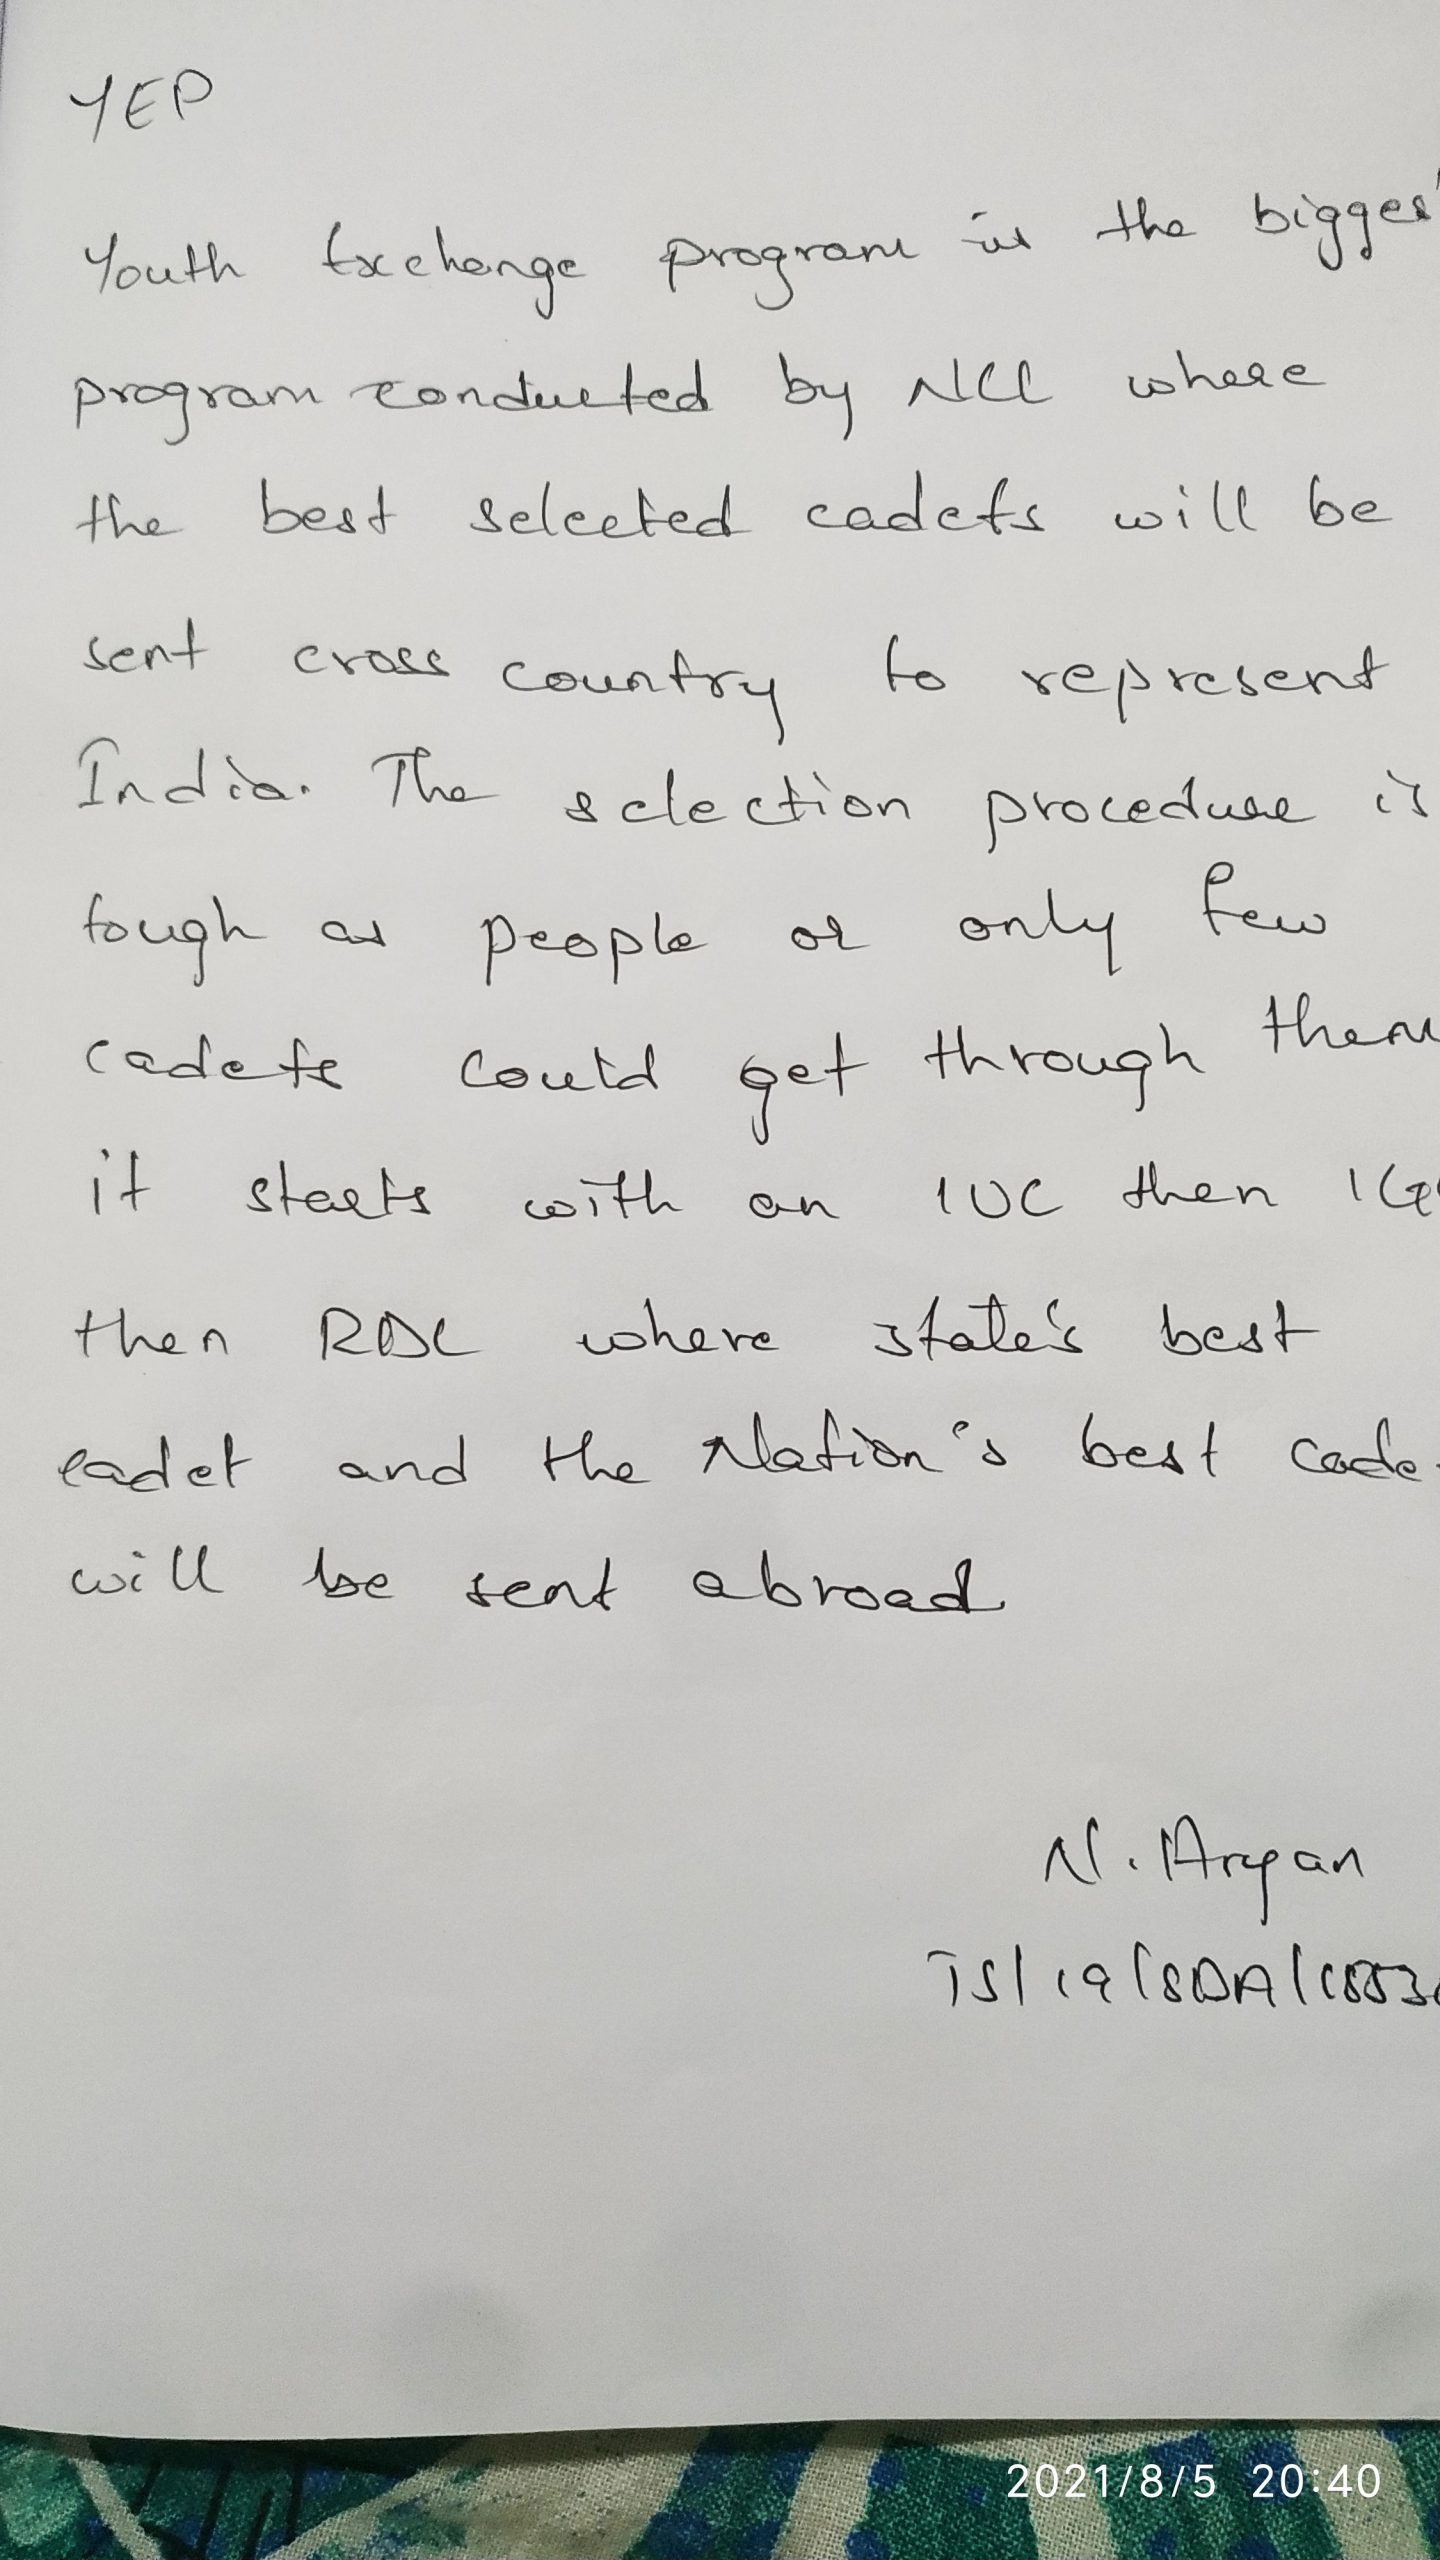 YEP
Youth Exchange program is the bigges
program conducted by NCC where
the best selected cadets will be
sent cross country to represent
India. The selection procedure is
tough as people or only few
cadets could get through them
it starts with an IUC then IG
then RDC where state's best
cadet and the Nation's best cade
will be sent abroad
N. Aryan
2021/8/5 20:40